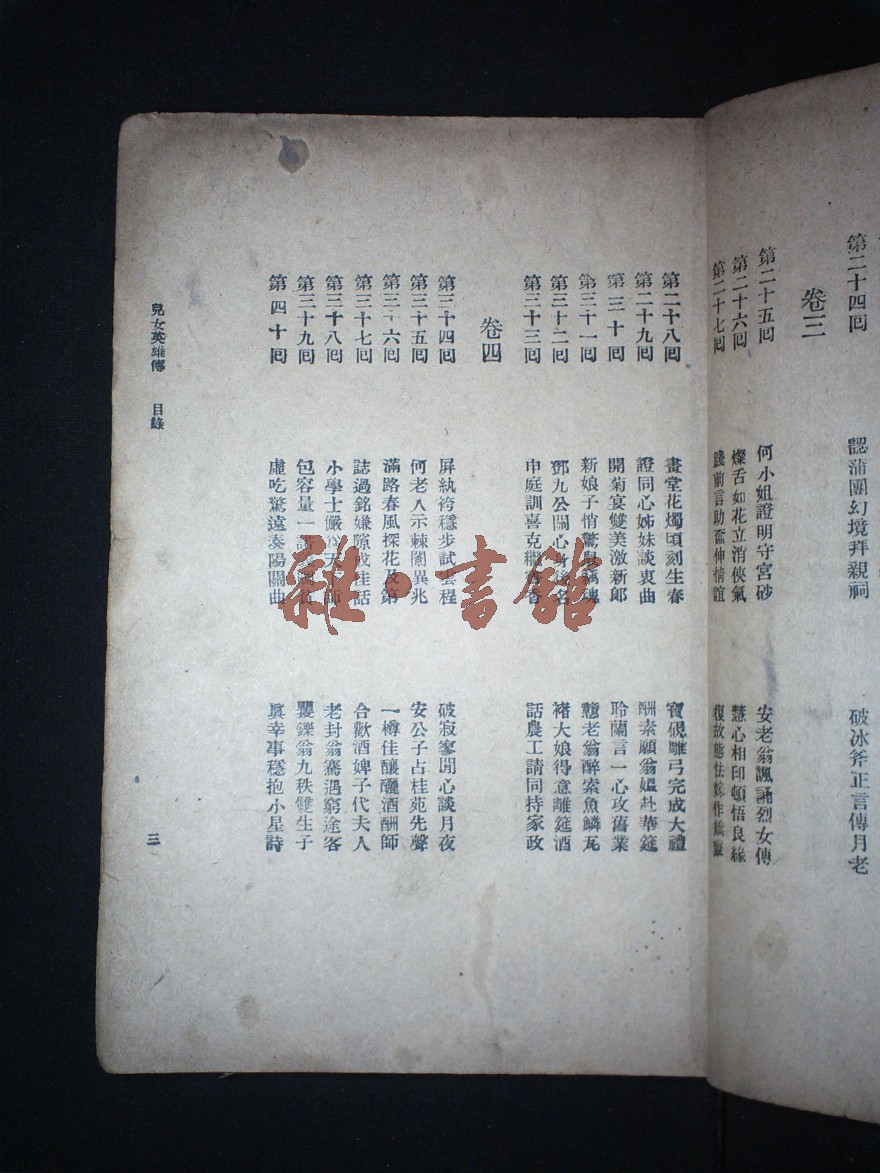 第二十四回　認蒲團幻境拜親祠　破冰斧正言傳月老
卷三
第二十五回　何小姐證明守宮砂　安老翁諷誦烈女傳
第二十六回　燦舌如花立消俠氣　慧心相印頓悟良緣
第二十七回　踐前言助奩伸情誼　復故態怯嫁作嬌嗔
第二十八回　畫堂花燭頃刻生春　寶硯雕弓完成大禮
第二十九回　證同心姊妹談衷曲　酬素願翁媼赴華筵
第三十回　開菊宴雙美激新郎　聆蘭言一心攻舊業
第三十一回　新娘子悄驚鼠竊魂　憨老翁醉索魚鱗瓦
第三十二回　鄧九公關心身後名　褚大娘得意離筵酒
第三十三回　申庭訓喜克繩書香　話農工請同持家政
卷四
第三十四回　屏紈袴穩步試雲程　破寂寥閒心談月夜
第三十五回　何老人示棘闈異兆　安公子占桂苑先聲
第三十六回　滿路春風探花及第　一樽佳釀酾酒酬師
第三十七回　誌過銘嫌隙成佳話　合歡酒婢子代夫人
第三十八回　小學士儼為天人師　老封翁驀遇窮途客
第三十九回　包容量一　矍鑠翁九秩雙生子
第四十回　虛吃驚遠奏陽關曲　眞幸事穩抱小星詩
兒女英雄傳　目錄
三
雜·書館